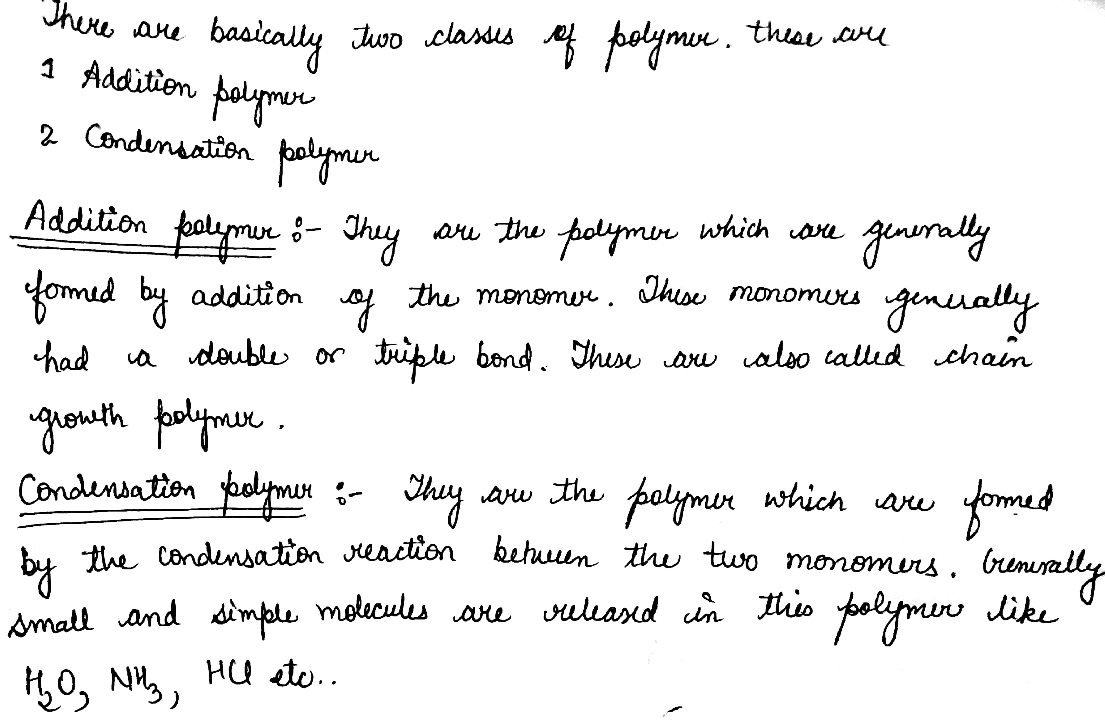 There are basically two classes of polymer. these are
1 Addition polymer
2 Condensation polymer
Addition polymer :- They are the polymer which are generally
formed by addition of the monomer. These monomers generally
had a double or triple bond. These are also called chain
growth polymer.
Condensation polymer :- They are the polymer which are formed
by the condensation reaction between the two monomers. Generally
small and simple molecules are released in this polymer like
H₂O, NH₃, HCl etc..